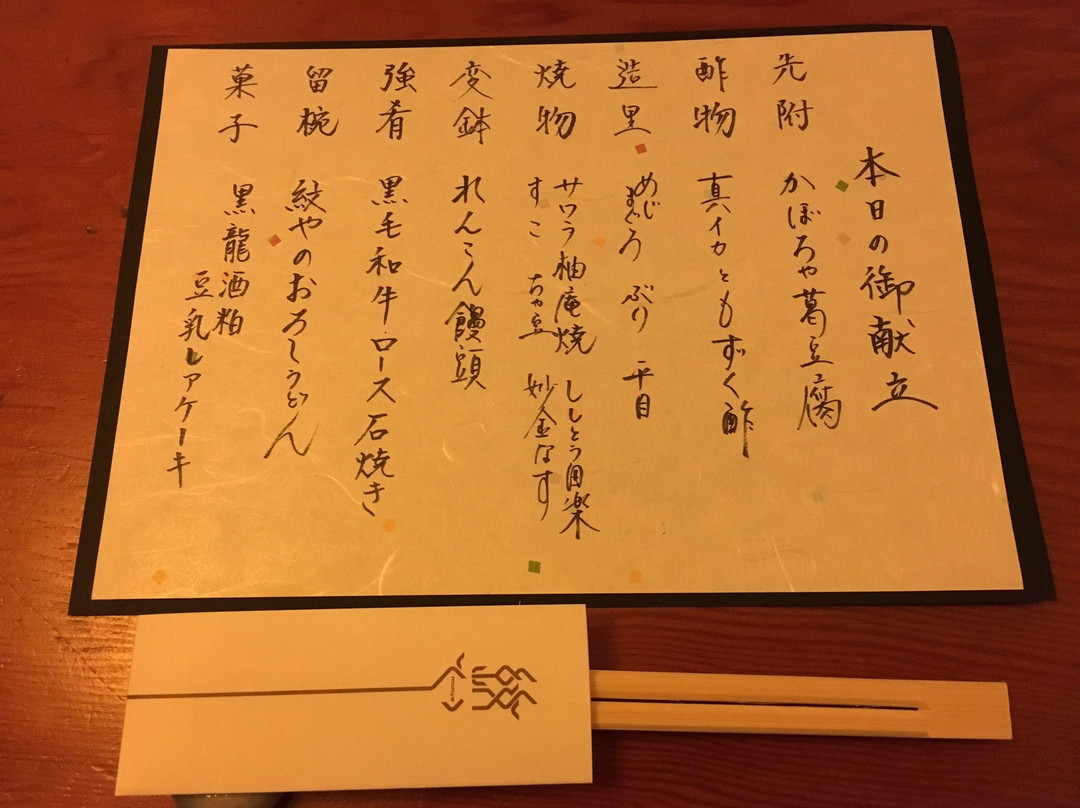 本日の御献立
先附 かぼちゃ葛豆腐
酢物 真イカともずく酢
造里 めじまぐろ ぶり 平目
焼物 サワラ柚庵焼 ししとう田楽
すこ ちゃ豆 妙金なす
変鉢 れんこん饅頭
強肴 黒毛和牛ロース石焼き
留椀 紋やのおろしうどん
菓子 黒龍酒粕
豆乳レアケーキ